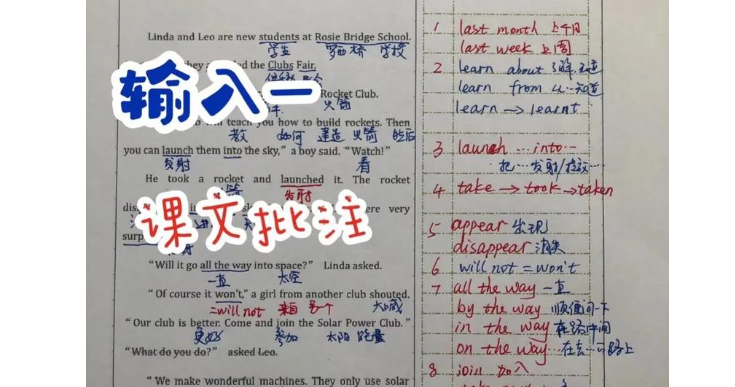 Linda and Leo are new students at Rosie Bridge School.
学生 罗西 桥 学校
the Clubs Fair.
输入一
Rocket Club.
火箭
teach you how to build rockets. Then
教 如何 建造 火箭 然后
you can launch them into the sky," a boy said. "Watch!"
发射 看
He took a rocket and launched it. The rocket
发射
very
课文批注
"Will it go all the way into space?" Linda asked.
一直 太空
"Of course it won't," a girl from another club shouted.
=will not 来自 大喊
"Our club is better. Come and join the Solar Power Club."
更好 参加 太阳 能量
"What do you do?" asked Leo.
"We make wonderful machines. They only use solar
1 last month 上个月
last week 上周
2 learn about 了解
learn from 从…知道
learn → learnt
3 launch … into…
把…发射
4 take → took → taken
5 appear 出现
disappear 消失
6 will not = won't
7 all the way 一直
by the way 顺便问一下
in the way
on the way 在去…路上
8 join 加入